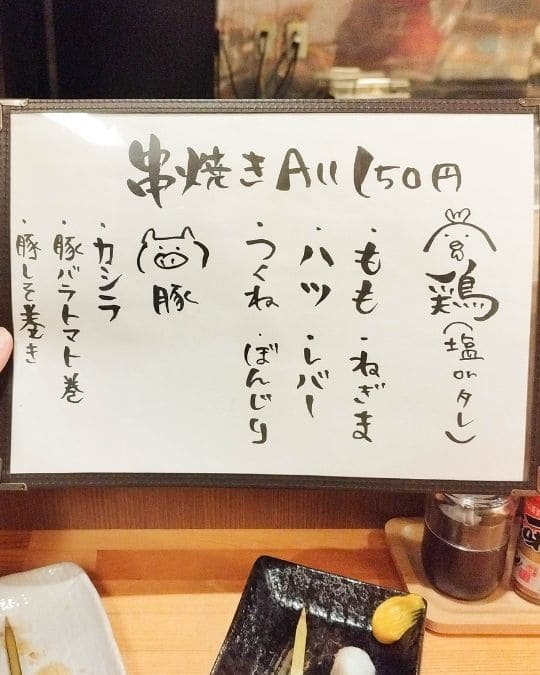 串焼きAll 150円
鶏(塩orタレ)
・もも ・ねぎま
・ハツ ・レバー
・つくね ・ぼんじり
豚
・カシラ
・豚バラトマト巻
・豚しそ巻き